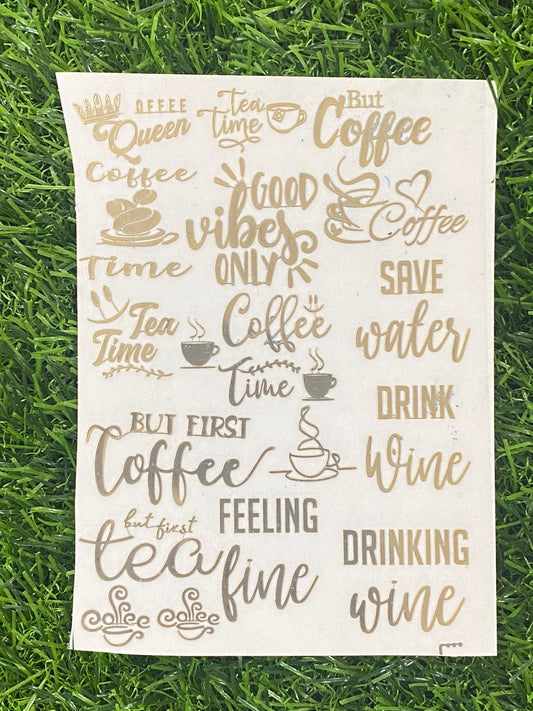 OFFEE
Queen
Tea
Time
But
Coffee
Coffee
Time
GOOD
vibes
ONLY
Coffee
SAVE
water
DRINK
Wine
Tea
Time
Coffee
Time
BUT FIRST
Coffee
but first
tea
FEELING
fine
DRINKING
wine
coffee
coffee